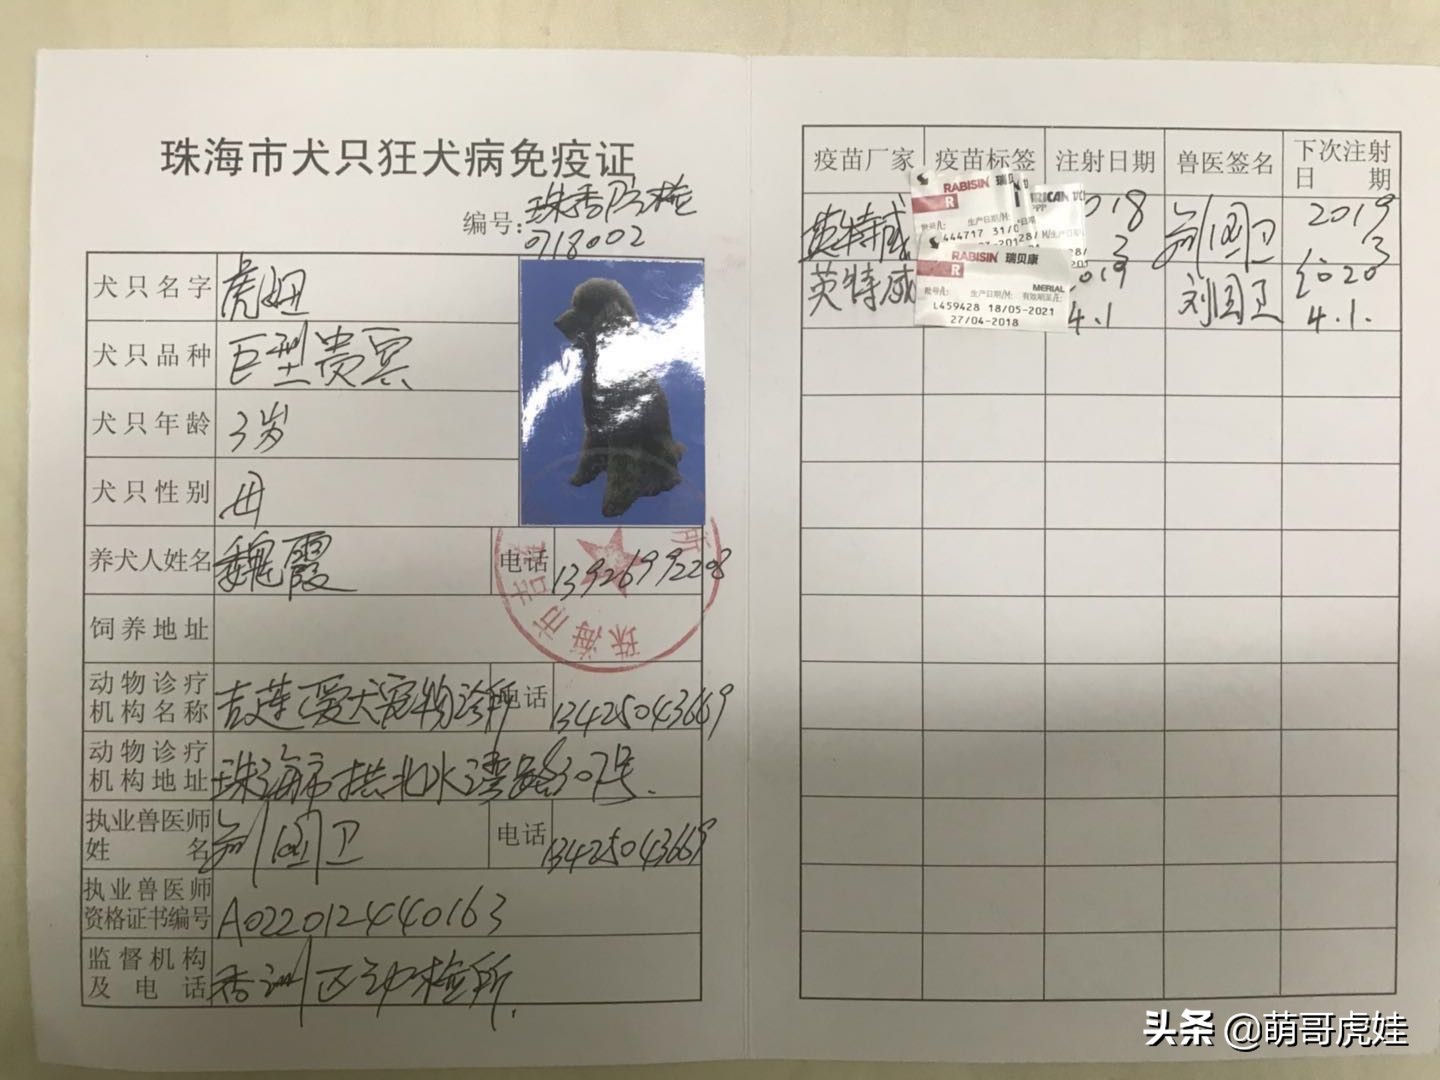 珠海市犬只狂犬病免疫证
编号: 珠香防检
0718002
犬只名字 虎妞
犬只品种 巨型贵宾
犬只年龄 3岁
犬只性别 母
养犬人姓名 魏霞 电话 13926992208
饲养地址
动物诊疗机构名称 吉莲爱犬宠物诊所 电话 13425043669
动物诊疗机构地址 珠海市拱北水湾路307号.
执业兽医师姓名 刘国卫 电话 13425043669
执业兽医师资格证书编号 A0220124440163
监督机构及电话 香洲区动检所.
珠海市吉莲 所
疫苗厂家 疫苗标签 注射日期 兽医签名 下次注射日期
英特威 018 3 刘国卫 2019 3
英特威 2019 4.1 刘国卫 2020 4.1.
RABISIN 瑞
R
生产日期/M:
444717 31/0
RABISIN 瑞贝康
R
MERIAL
批号/L: 生产日期/M: 有效期至/E:
L459428 18/05-2021
27/04-2018
头条 @萌哥虎娃